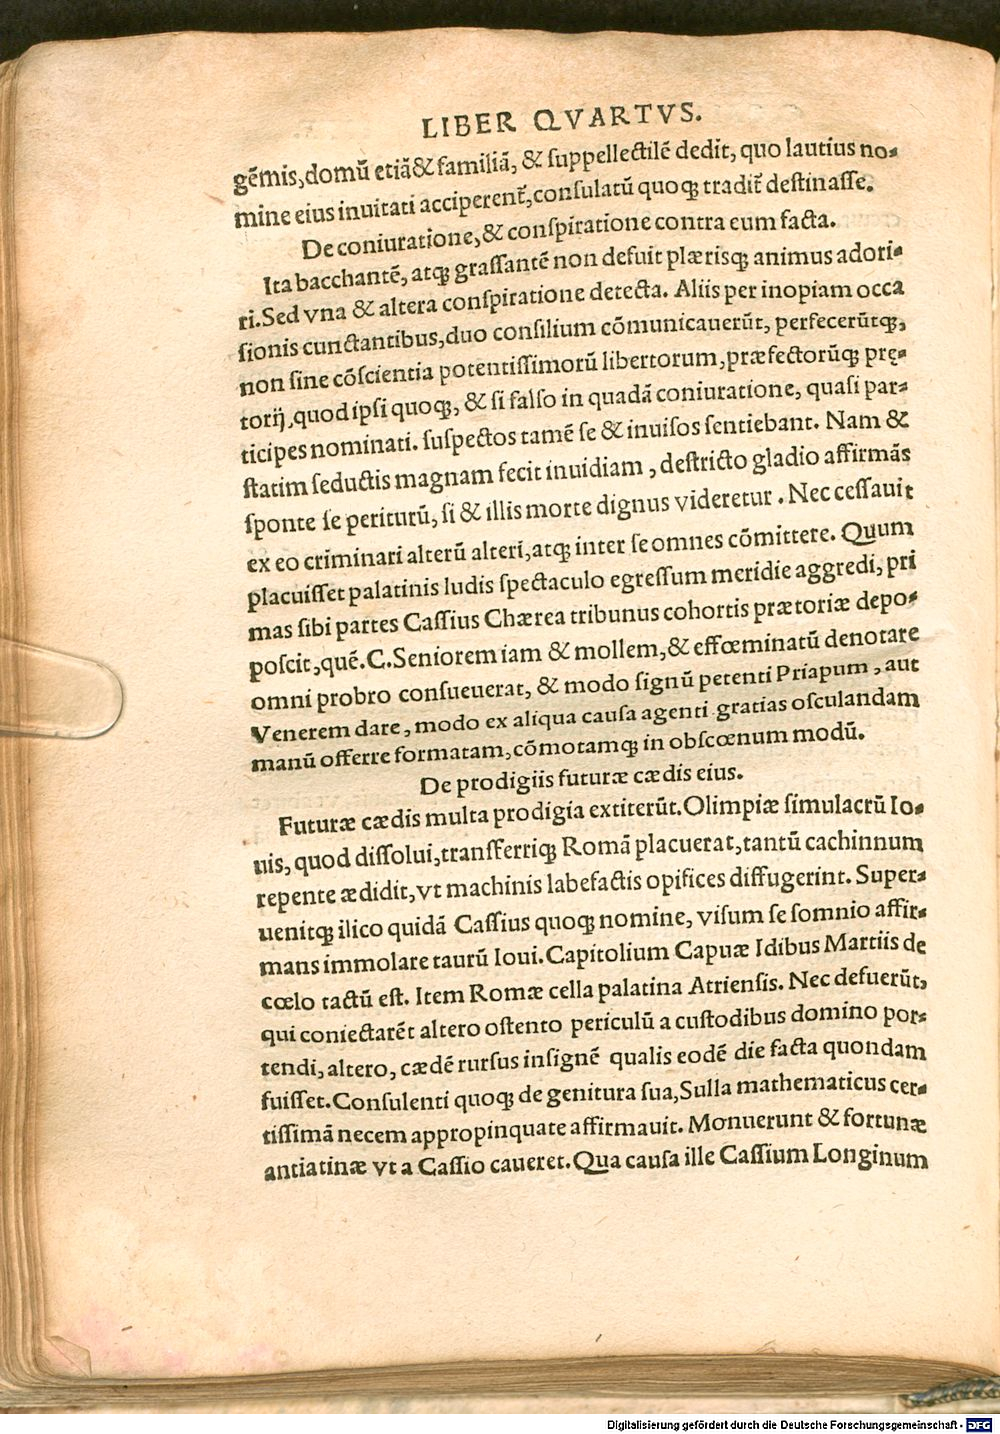 LIBER QVARTVS.
gẽmis,domũ etiã& familiã, & ſuppellectilẽ dedit, quo lautius no-
mine eius inuitati acciperent᷑,conſulatũ quoq; tradit᷑ deſtinaſſe.
De coniuratione,& conſpiratione contra eum facta.
Ita bacchantẽ, atq; graſſantẽ non defuit plæriſq; animus adori-
ri.Sed vna & altera conſpiratione detecta. Aliis per inopiam occa
ſionis cunctantibus,duo conſilium cõmunicauerũt, perfecerũtq;,
non ſine cõſcientia potentiſſimorũ libertorum,præfectorũq; prę-
torĳ,quod ipſi quoq;, & ſi falſo in quadã coniuratione, quaſi par-
ticipes nominati. ſuſpectos tamẽ ſe & inuiſos ſentiebant. Nam &
ſtatim ſeductis magnam fecit inuidiam , deſtricto gladio affirmãs
ſponte ſe periturũ, ſi & illis morte dignus videretur . Nec ceſſauit
ex eo criminari alterũ alteri,atq; inter ſe omnes cõmittere. Quum
placuiſſet palatinis ludis ſpectaculo egreſſum meridie aggredi, pri
mas ſibi partes Caſſius Chærea tribunus cohortis prætoriæ depo-
poſcit,quẽ.C.Seniorem iam & mollem,& effœminatũ denotare
omni probro conſueuerat, & modo ſignũ petenti Priapum , aut
Venerem dare, modo ex aliqua cauſa agenti gratias oſculandam
manũ offerre formatam,cõmotamq; in obſcœnum modũ.
De prodigiis futuræ cædis eius.
Futuræ cædis multa prodigia extiterũt.Olimpiæ ſimulacrũ Io-
uis, quod diſſolui,tranſferriq; Romã placuerat,tantũ cachinnum
repente ædidit,vt machinis labefactis opifices diffugerint. Super-
uenitq; ilico quidã Caſſius quoq; nomine, viſum ſe ſomnio affir-
mans immolare taurũ Ioui.Capitolium Capuæ Idibus Martiis de
cœlo tactũ eſt. Item Romæ cella palatina Atrienſis. Nec defuerũt,
qui coniectarẽt altero oſtento periculũ a cuſtodibus domino por-
tendi, altero, cædẽ rurſus inſignẽ qualis eodẽ die facta quondam
fuiſſet.Conſulenti quoq; de genitura ſua,Sulla mathematicus cer-
tiſſimã necem appropinquate affirmauit. Monuerunt & fortunæ
antiatinæ vt a Caſſio caueret.Qua cauſa ille Caſſium Longinum
Digitalisierung gefördert durch die Deutsche Forschungsgemeinschaft - DFG